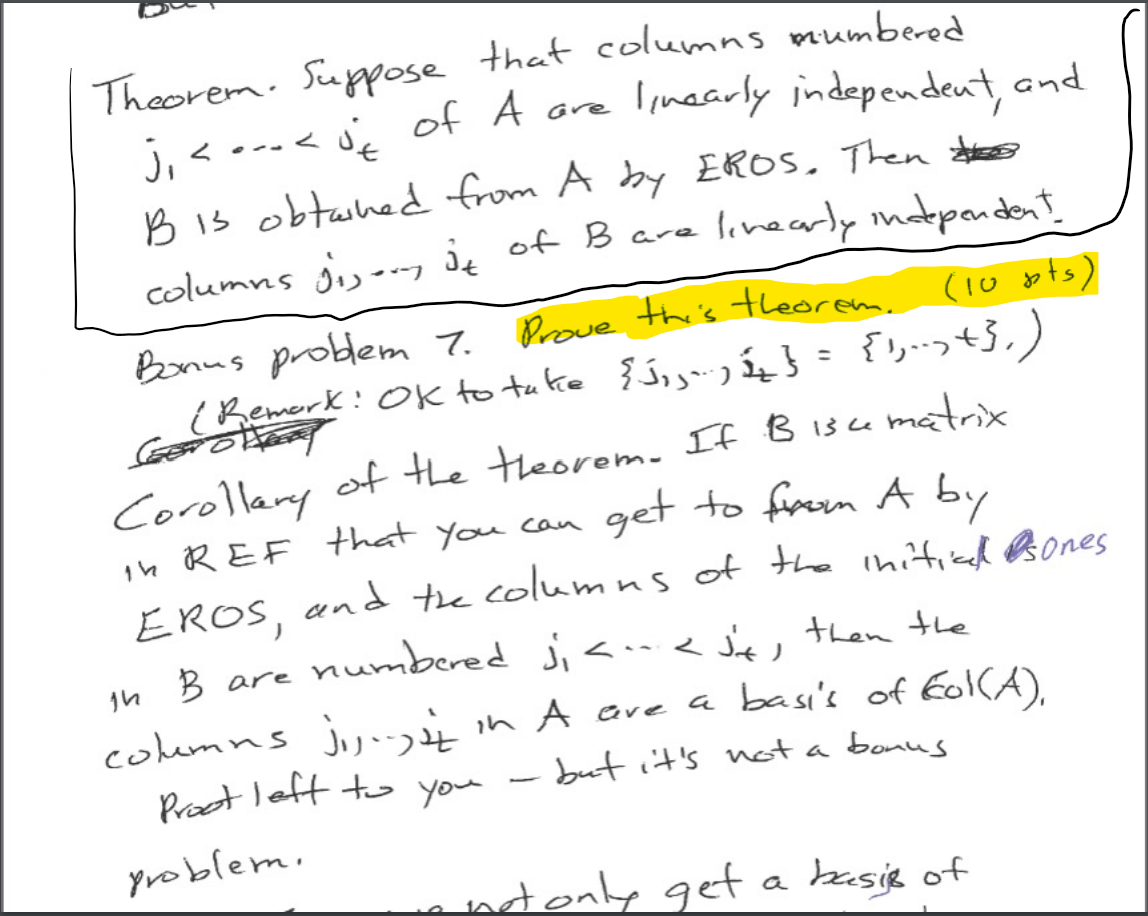 Theorem. Suppose that columns numbered
j₁ < ... < jₜ of A are linearly independent, and
B is obtained from A by EROS. Then
columns j₁, ..., jₜ of B are linearly independent.
Bonus problem 7. Prove this theorem. (10 pts)
(Remark: OK to take {j₁, ..., jₜ} = {1, ..., t}.)
Corollary of the theorem. If B is a matrix
in REF that you can get to from A by
EROS, and the columns of the initial ones
in B are numbered j₁ < ... < jₜ, then the
columns j₁, ..., jₜ in A are a basis of Col(A).
Proof left to you – but it's not a bonus
problem.
not only get a basis of